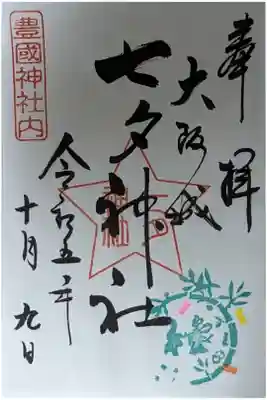 奉拝
大阪城
七夕神社
令和五年
十月九日
豊國神社内